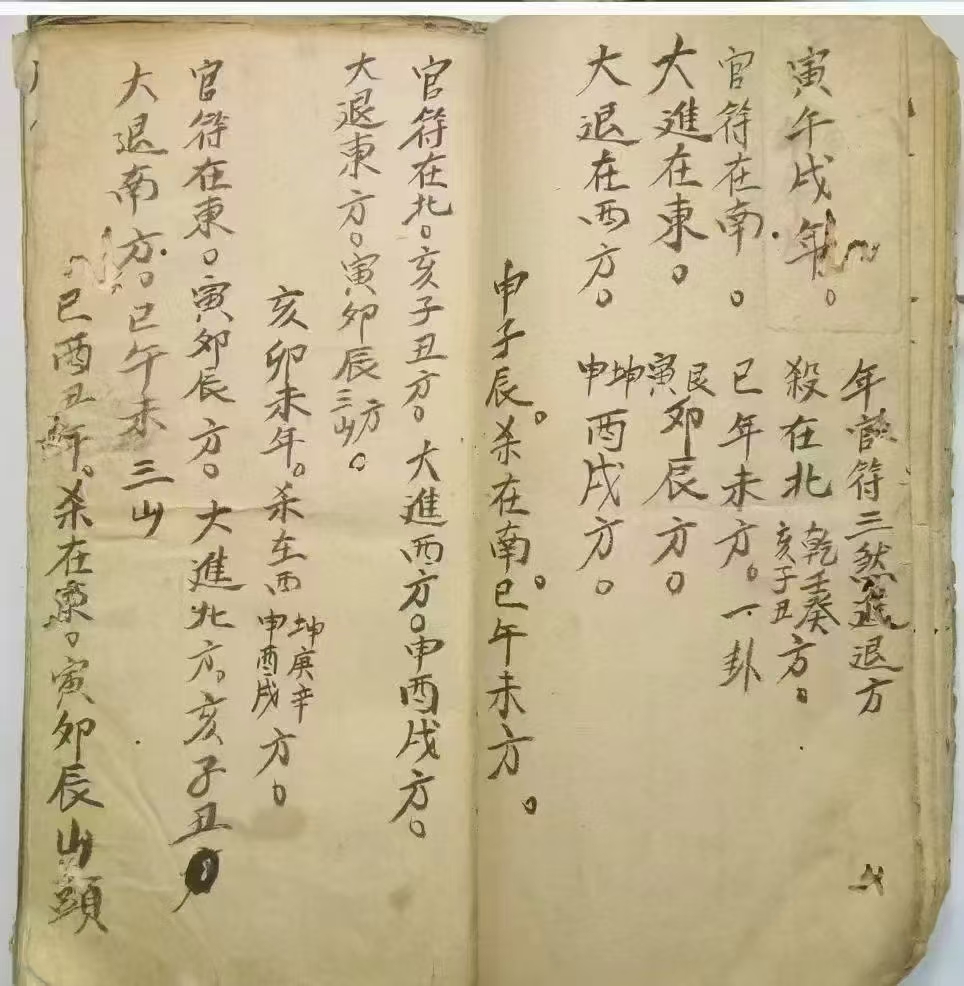 年官符三煞進退方
寅午戌年。殺在北乾壬癸亥子丑方。
官符在南。巳年未方。一卦
大進在東。艮寅卯辰方。
大退在西方。坤申酉戌方。
申子辰。杀在南。巳午未方。
官符在北。亥子丑方。大進西方。申酉戌方。
大退東方。寅卯辰方三山。
亥卯未年。杀在西坤庚辛申酉戌方。
官符在東。寅卯辰方。大進北方。亥子丑
大退南方。巳午未三山
巳酉丑年。杀在東。寅卯辰山頭